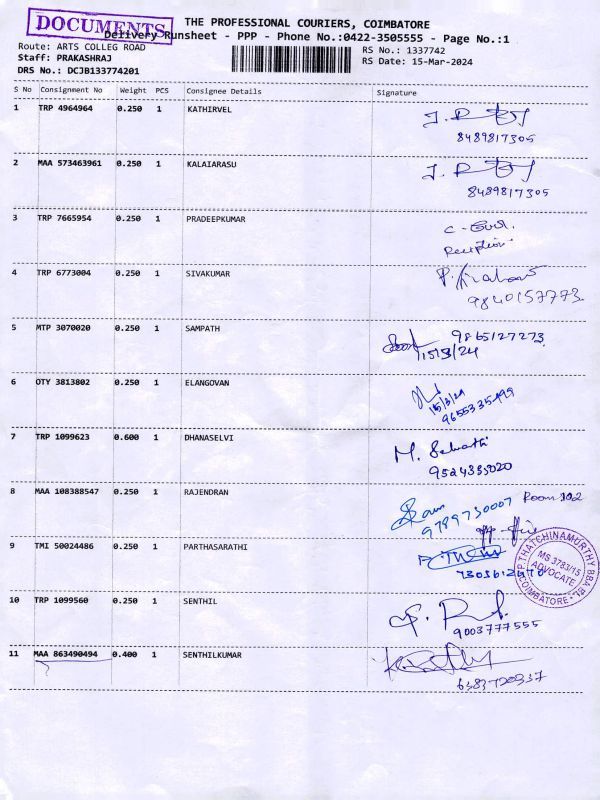 DOCUMENTS
THE PROFESSIONAL COURIERS, COIMBATORE
Delivery Runsheet - PPP - Phone No.:0422-3505555 - Page No.:1
Route: ARTS COLLEG ROAD
RS No.: 1337742
Staff: PRAKASHRAJ
RS Date: 15-Mar-2024
DRS No.: DCJB133774201
S No Consignment No Weight PCS Consignee Details Signature
1 TRP 4964964 0.250 1 KATHIRVEL
8489817305
2 MAA 573463961 0.250 1 KALAIARASU
8489817305
3 TRP 7665954 0.250 1 PRADEEPKUMAR
Reception
4 TRP 6773004 0.250 1 SIVAKUMAR
9840157773
5 MTP 3070020 0.250 1 SAMPATH
9865127273
15/3/24
6 OTY 3813802 0.250 1 ELANGOVAN
15/3/24
9655335499
7 TRP 1099623 0.600 1 DHANASELVI
M. Selvathi
9524335020
8 MAA 108388547 0.250 1 RAJENDRAN
9789730007 Room 102
9 TMI 50024486 0.250 1 PARTHASARATHI
P THATCHINAMURTHY BBA BL
MS 3783/15
ADVOCATE
COIMBATORE
10 TRP 1099560 0.250 1 SENTHIL
9003777555
11 MAA 863490494 0.400 1 SENTHILKUMAR
6383720937